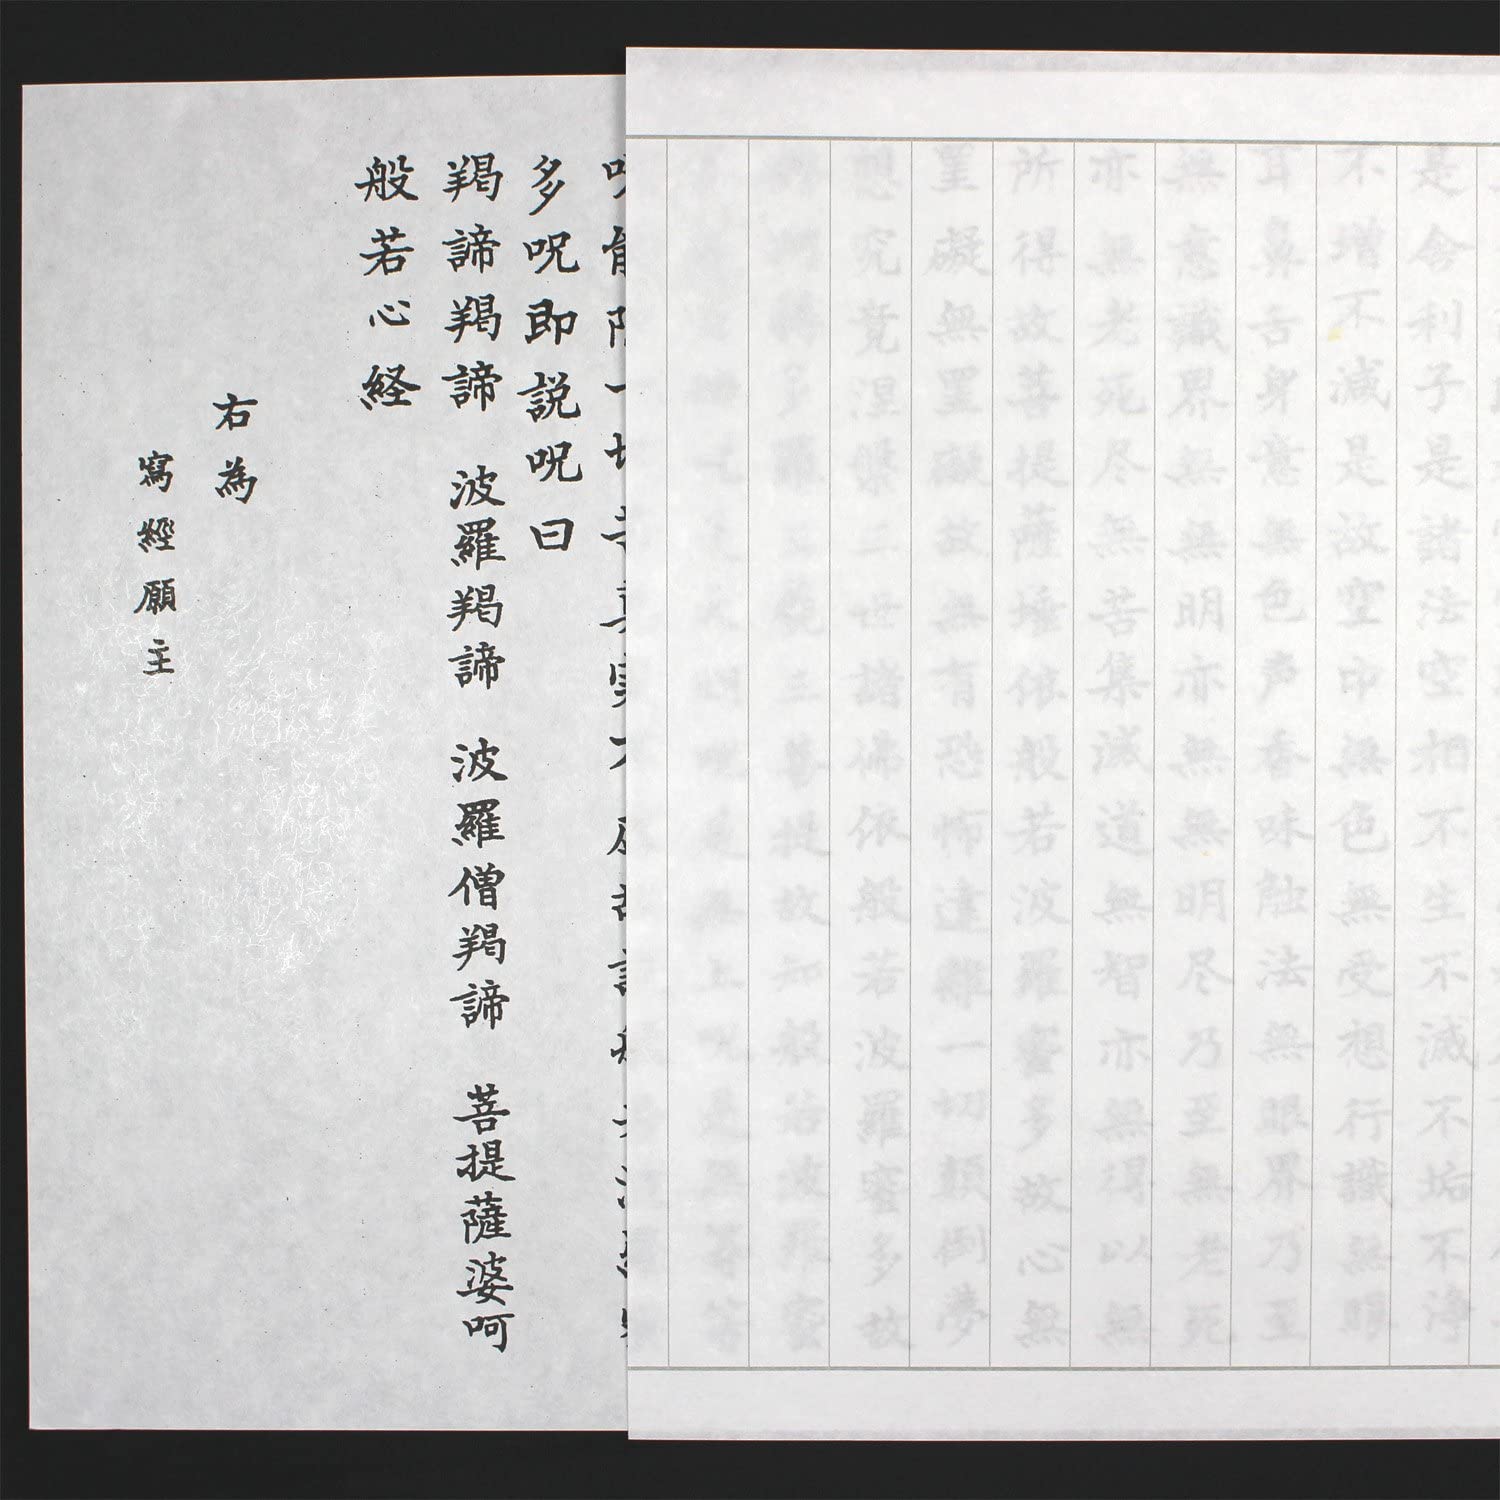 是舎利子是諸法空相不生不滅不垢不浄
不増不減是故空中無色無受想行識無眼
耳鼻舌身意無色声香味触法無眼界乃至
無意識界無無明亦無無明尽乃至無老死
亦無老死尽無苦集滅道無智亦無得以無
所得故菩提薩埵依般若波羅蜜多故心無
罣礙無罣礙故無有恐怖遠離一切顛倒夢
想究竟涅槃三世諸佛依般若波羅蜜多故
耨多羅三藐三菩提故知般若波羅蜜
大明呪是無上呪是無等等
多呪即説呪曰
羯諦羯諦 波羅羯諦 波羅僧羯諦 菩提薩婆呵
般若心経
右為
寫經願主